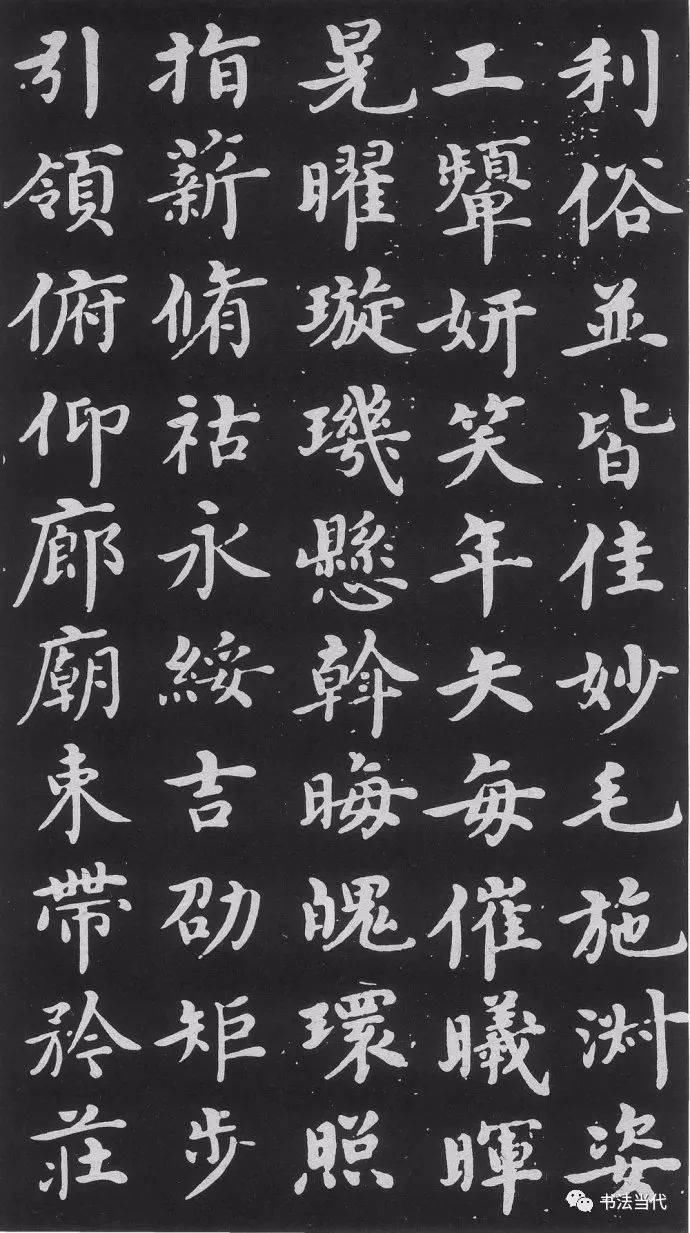 利俗並皆佳妙毛施淑姿
工顰妍笑年矢每催曦暉
晃曜璇璣懸斡晦魄環照
指薪脩祜永綏吉劭矩步
引領俯仰廊廟束帶矜莊
书法当代